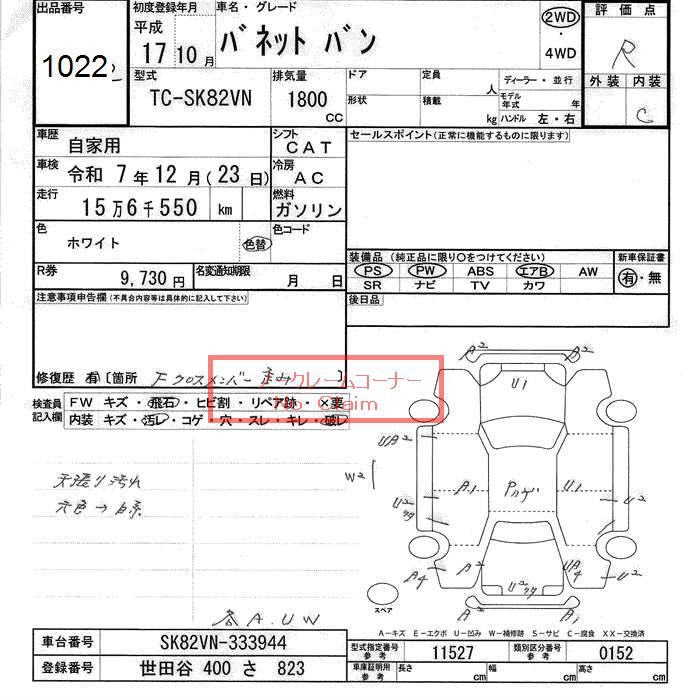 出品番号
1022
初度登録年月
平成
17 10月
車名・グレード
バネット バン
2WD
・
4WD
評価点
R
外装 内装
C
型式
TC-SK82VN
排気量
1800
CC
ドア 定員 人
形状 積載 kg
ディーラー・並行
モデル年式 年
ハンドル 左・右
車歴
自家用
シフト
CAT
車検
令和 7年 12月(23日)
冷房
AC
走行
15万6千550 km
燃料
ガソリン
色
ホワイト
色替
色コード
R券
9,730 円
名変通知期限
月 日
セールスポイント(正常に機能するものに限ります)
装備品 (純正品に限り〇をつけてください)
PS PW ABS エアB AW
SR ナビ TV カワ
新車保証書
有・無
後日品
注意事項申告欄(不具合内容等は具体的に記入して下さい)
修復歴 有〔箇所 Fクロスメンバー歪み 〕
ノークレームコーナー
No Claim
検査員記入欄
FW キズ・飛石・ヒビ割・リペア跡・×要
内装 キズ・汚レ・コゲ・穴・スレ・キレ・破レ
天張り汚れ
元色→白系
各A.U W
A2 A2
U1
UA2
W2
A1 アカゲ U1
U2 U2
A4 A2 U2 UA4 U2
A2 A1
スペア
A-キズ E-エクボ U-凹み W-補修跡 S-サビ C-腐食 XX-交換済
車台番号 SK82VN-333944
登録番号 世田谷 400 さ 823
型式指定番号 参考 11527
類別区分番号 参考 0152
車庫証明用 参考 長さ cm 幅 cm 高さ cm